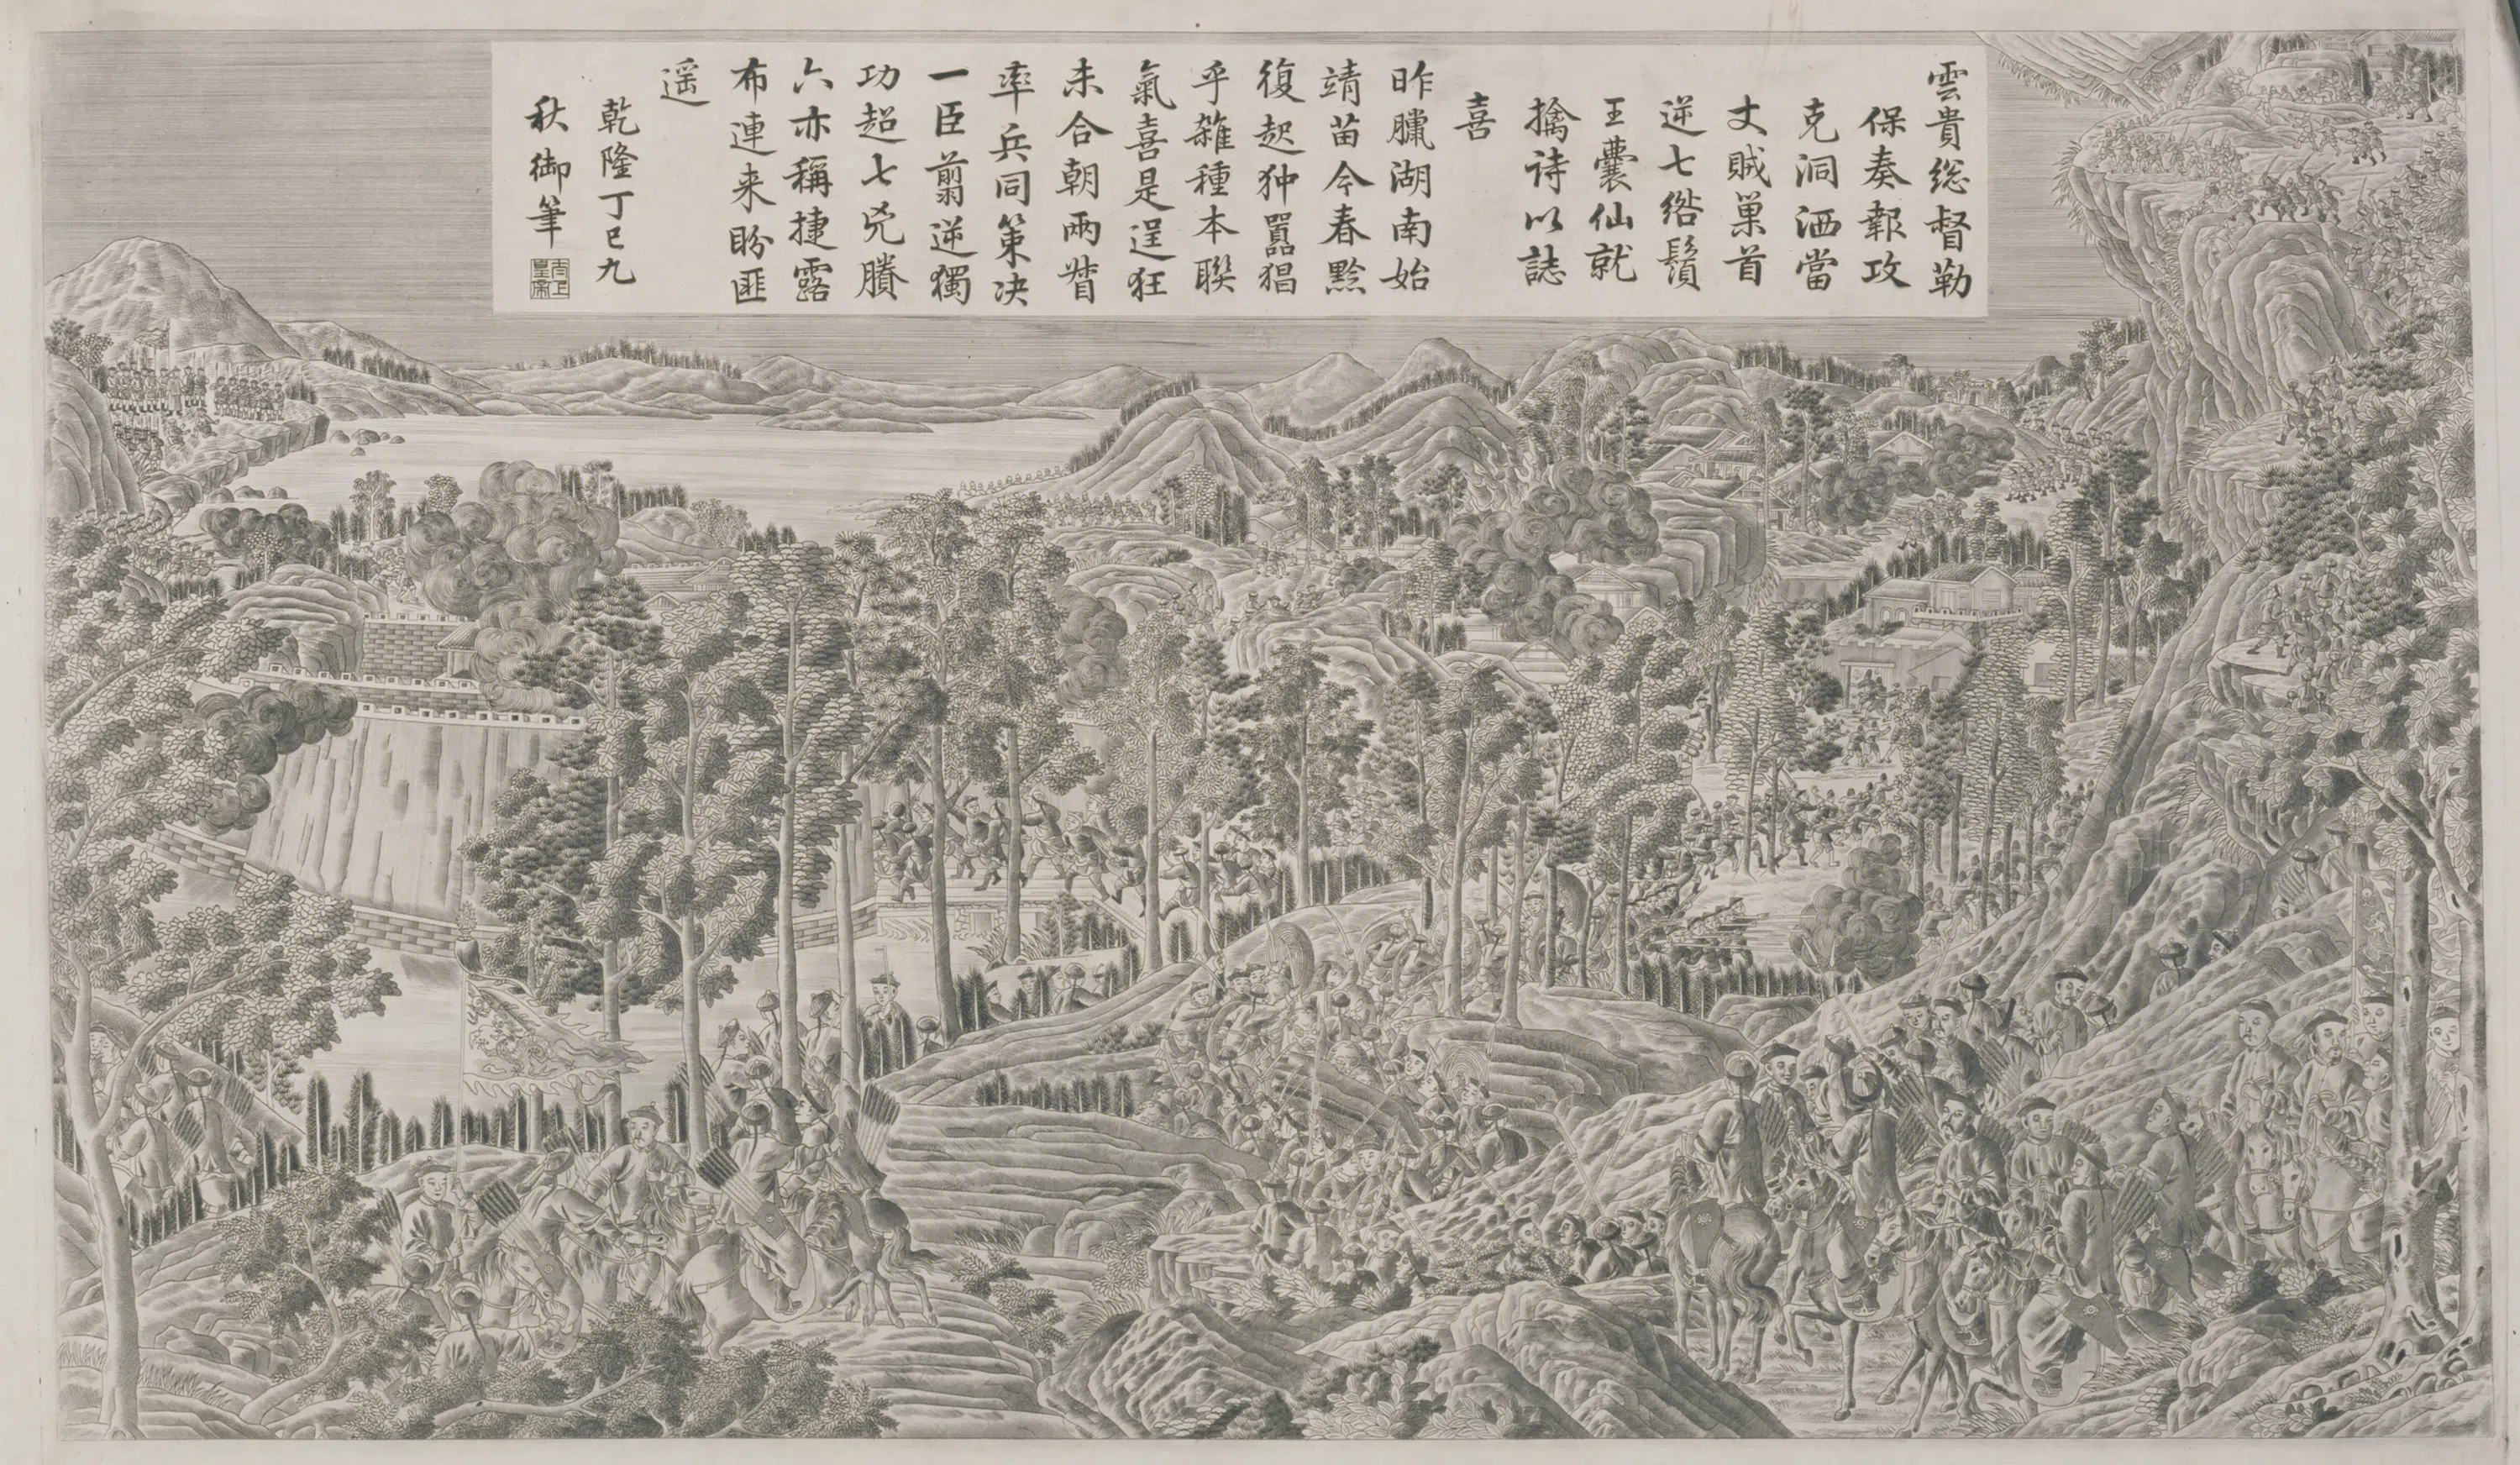 雲貴総督勒
保奏報攻
克洞洒當
丈賊巢首
逆七綹鬚
王囊仙就
擒诗以誌
喜
昨臘湖南始
靖苗今春黔
復起狆嚚猖
乎雜種本聯
氣喜是逞狂
未合朝兩省
率兵同策决
一臣翦逆獨
功超七兇賸
六亦稱捷露
布連来盼匪
遥
乾隆丁巳九
秋御筆
太上
皇帝